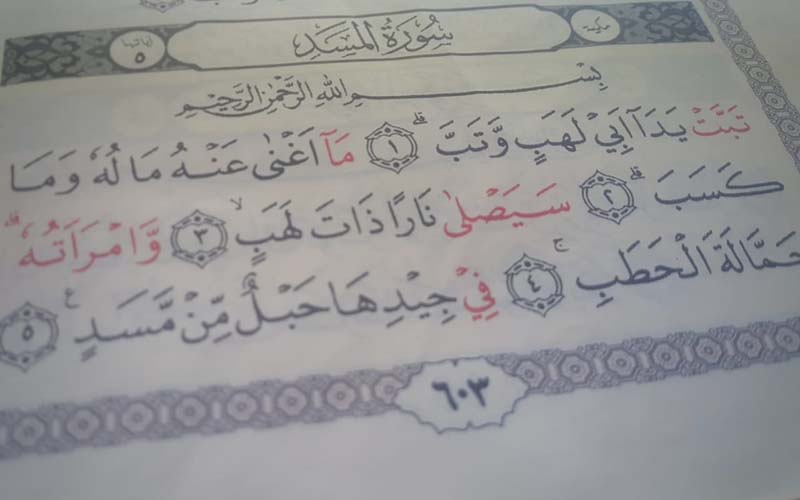 مكية سُورَةُ المَسَدِ اٰياتها ٥
بِسْمِ اللهِ الرَّحْمٰنِ الرَّحِيْمِ
تَبَّتْ يَدَآ اَبِيْ لَهَبٍ وَّتَبَّ ۗ ١ مَآ اَغْنٰى عَنْهُ مَالُهٗ وَمَا
كَسَبَ ۗ ٢ سَيَصْلٰى نَارًا ذَاتَ لَهَبٍ ۙ ٣ وَّامْرَاَتُهٗ ۗ
حَمَّالَةَ الْحَطَبِ ۚ ٤ فِيْ جِيْدِهَا حَبْلٌ مِّنْ مَّسَدٍ ࣖ ٥
٦٠٣